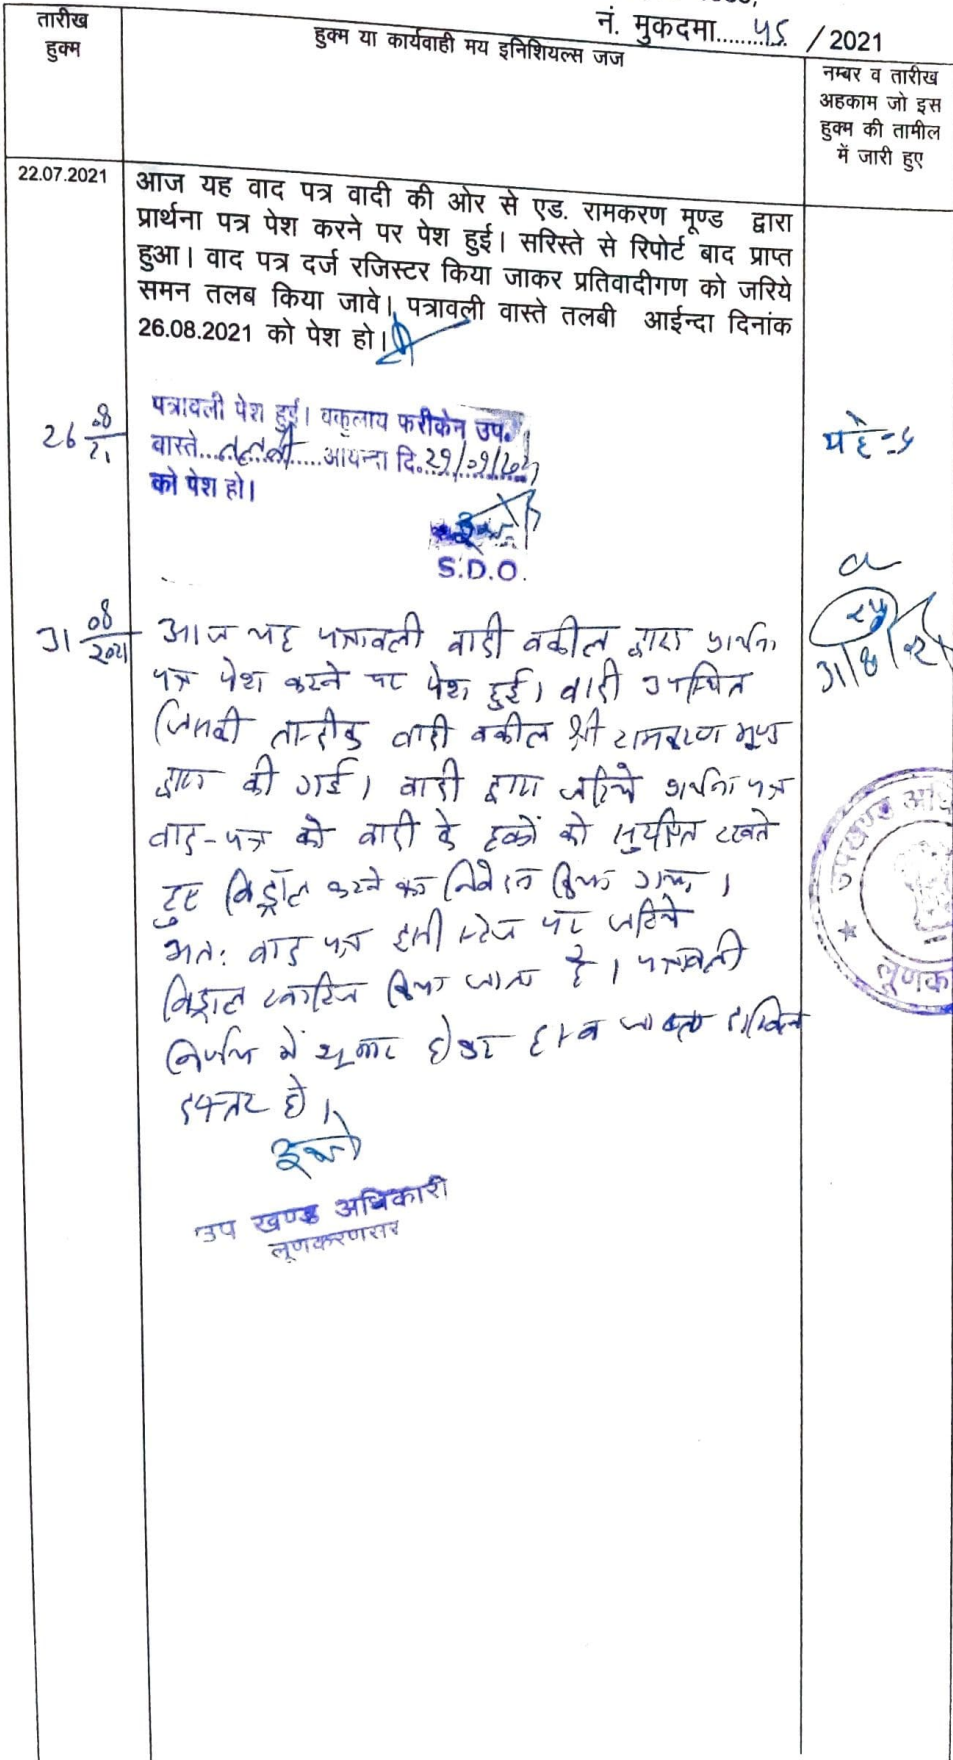 नं. मुकदमा......... / 2021
तारीख
हुक्म
हुक्म या कार्यवाही मय इनिशियल्स जज
नम्बर व तारीख
अहकाम जो इस
हुक्म की तामील
में जारी हुए
22.07.2021
आज यह वाद पत्र वादी की ओर से एड. रामकरण मूण्ड द्वारा
प्रार्थना पत्र पेश करने पर पेश हुई। सरिस्ते से रिपोर्ट बाद प्राप्त
हुआ। वाद पत्र दर्ज रजिस्टर किया जाकर प्रतिवादीगण को जरिये
समन तलब किया जावे। पत्रावली वास्ते तलबी आईन्दा दिनांक
26.08.2021 को पेश हो।
26 08/21
पत्रावली पेश हुई। वकुलाय फरीकेन उप.
वास्ते...तलबी......आयन्दा दि.
को पेश हो।
S.D.O.
31 08/2021
आज यह पत्रावली वादी वकील द्वारा प्रार्थना
पत्र पेश करने पर पेश हुई। वादी उपस्थित
जिसकी तस्दीक वादी वकील श्री रामकरण मूण्ड
द्वारा की गई। वादी द्वारा जरिये प्रार्थना पत्र
वाद-पत्र को वादी के हकों को सुरक्षित रखते
हुए विड्रॉल करने का निवेदन किया गया।
अतः वाद पत्र इसी स्टेज पर जरिये
विड्रॉल खारिज किया जाता है। पत्रावली
निर्णय में शुमार होकर दाखिल
दफ्तर हो।
उप खण्ड अधिकारी
लूणकरणसर
उपखण्ड अधि
लूणक